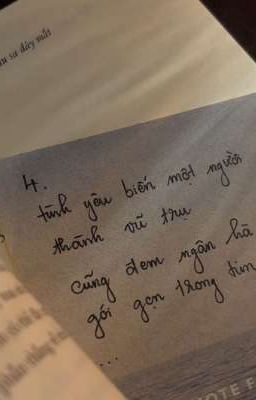 sư dãy mắt
4.
tình yêu biến một người
thành vũ trụ
cũng đem ngân hà
gói gọn trong tim
...
OTE F